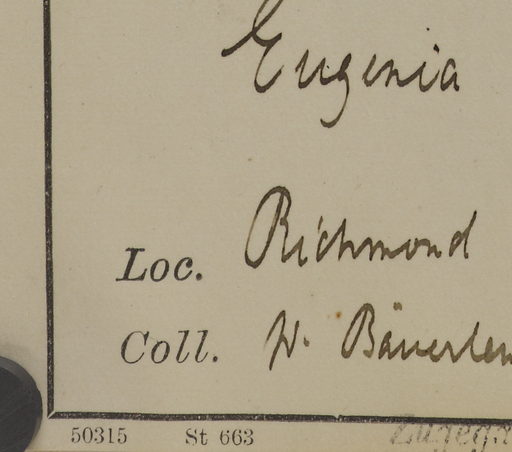 Eugenia
Loc. Richmond
Coll. W. Bäuerlen
50315 St 663